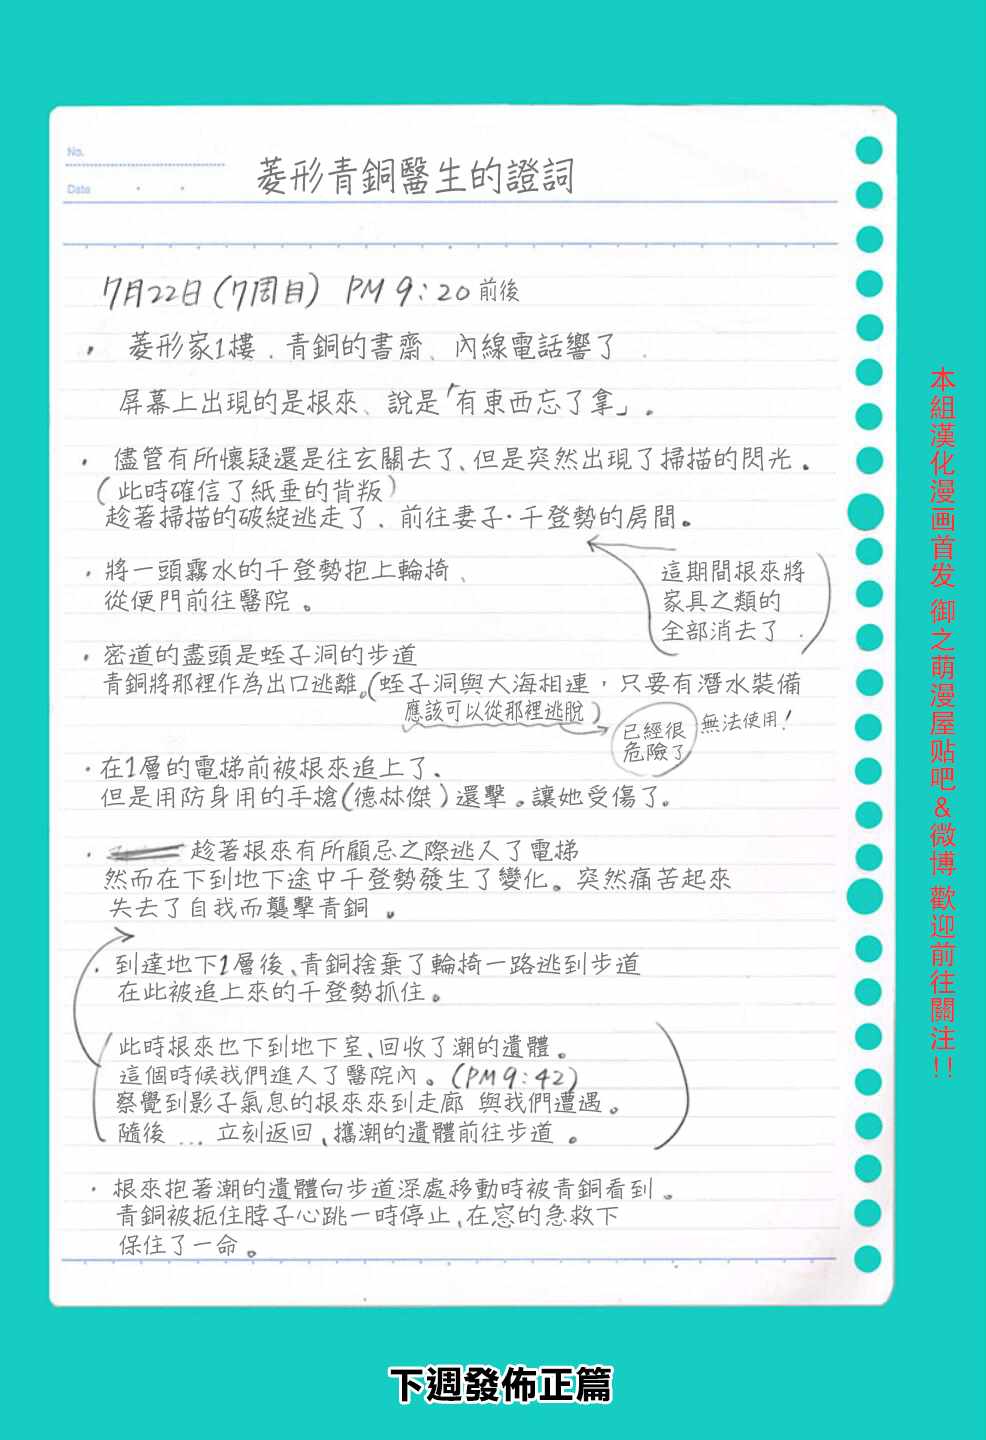 No.
Date
菱形青銅醫生的證詞
7月22日(7周目) PM 9:20前後
・菱形家1樓.青銅的書齋、內線電話響了
屏幕上出現的是根來、說是「有東西忘了拿」。
・儘管有所懷疑還是往玄關去了、但是突然出現了掃描的閃光。
(此時確信了紙垂的背叛)
趁著掃描的破綻逃走了、前往妻子・千登勢的房間。
這期間根來將
家具之類的
全部消去了.
・將一頭霧水的千登勢抱上輪椅、
從便門前往醫院。
・密道的盡頭是蛭子洞的步道
青銅將那裡作為出口逃離。(蛭子洞與大海相連,只要有潛水裝備
應該可以從那裡逃脫)
已經很
危險了
無法使用!
・在1層的電梯前被根來追上了、
但是用防身用的手槍(德林傑)還擊。讓她受傷了。
・趁著根來有所顧忌之際逃入了電梯
然而在下到地下途中千登勢發生了變化。突然痛苦起來
失去了自我而襲擊青銅。
・到達地下1層後、青銅捨棄了輪椅一路逃到步道
在此被追上來的千登勢抓住。
(此時根來也下到地下室、回收了潮的遺體。
這個時候我們進入了醫院內。(PM9:42)
察覺到影子氣息的根來來到走廊 與我們遭遇。
隨後...立刻返回、攜潮的遺體前往步道。)
・根來抱著潮的遺體向步道深處移動時被青銅看到。
青銅被扼住脖子心跳一時停止、在窓的急救下
保住了一命。
本組漢化漫画首发 御之萌漫屋贴吧&微博 歡迎前往關注!!
下週發佈正篇